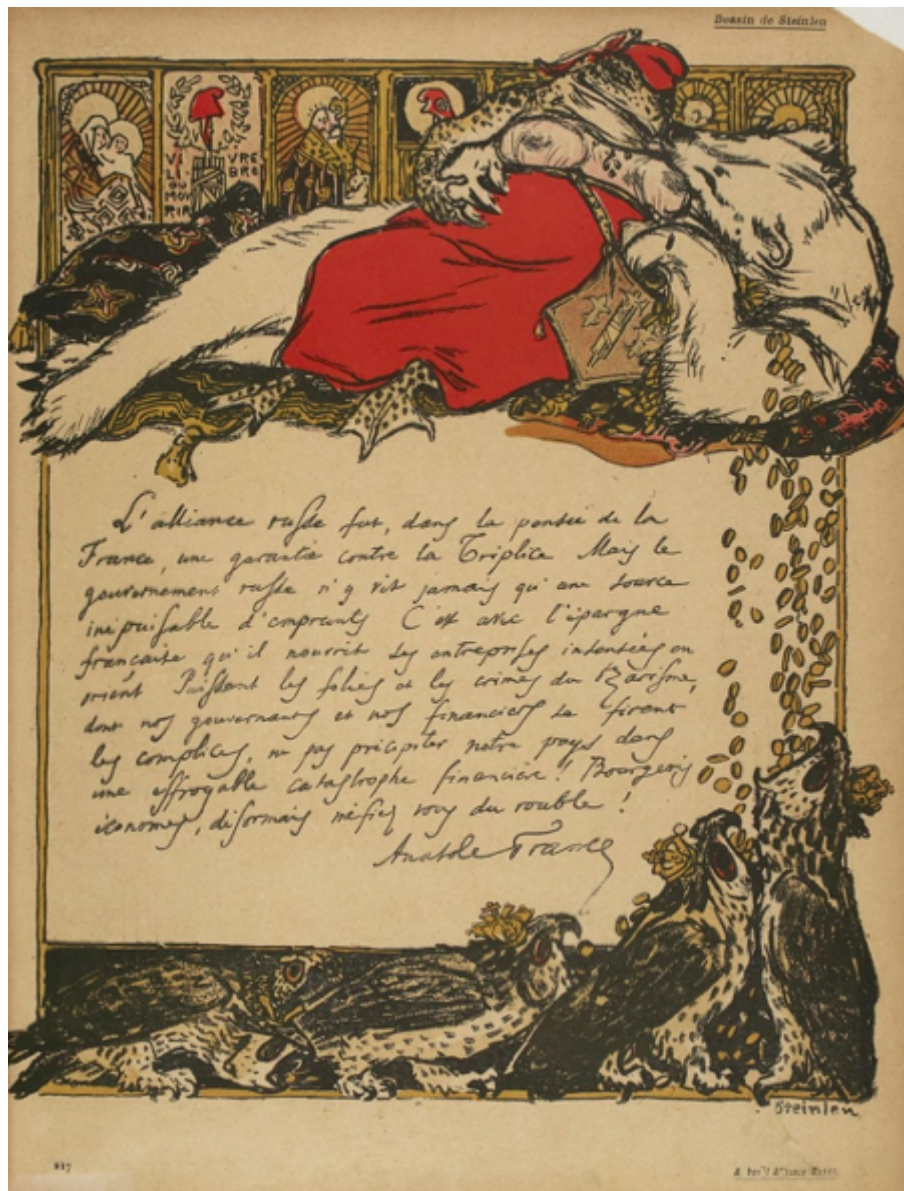 Dessin de Steinlen
VI VRE
LI- BRE
OU
MOU
RIR
L'alliance russe fut, dans la pensée de la
France, une garantie contre la Triplice Mais le
gouvernement russe n'y vit jamais qu'une source
inépuisable d'emprunts C'est avec l'épargne
française qu'il nourrit ses entreprises insensées en
orient Puissent les folies et les crimes du Tzarisme,
dont nos gouvernants et nos financiers se firent
les complices, ne pas précipiter notre pays dans
une effroyable catastrophe financière! Bourgeois
économes, désormais méfiez vous du rouble!
Anatole France
Steinlen
217